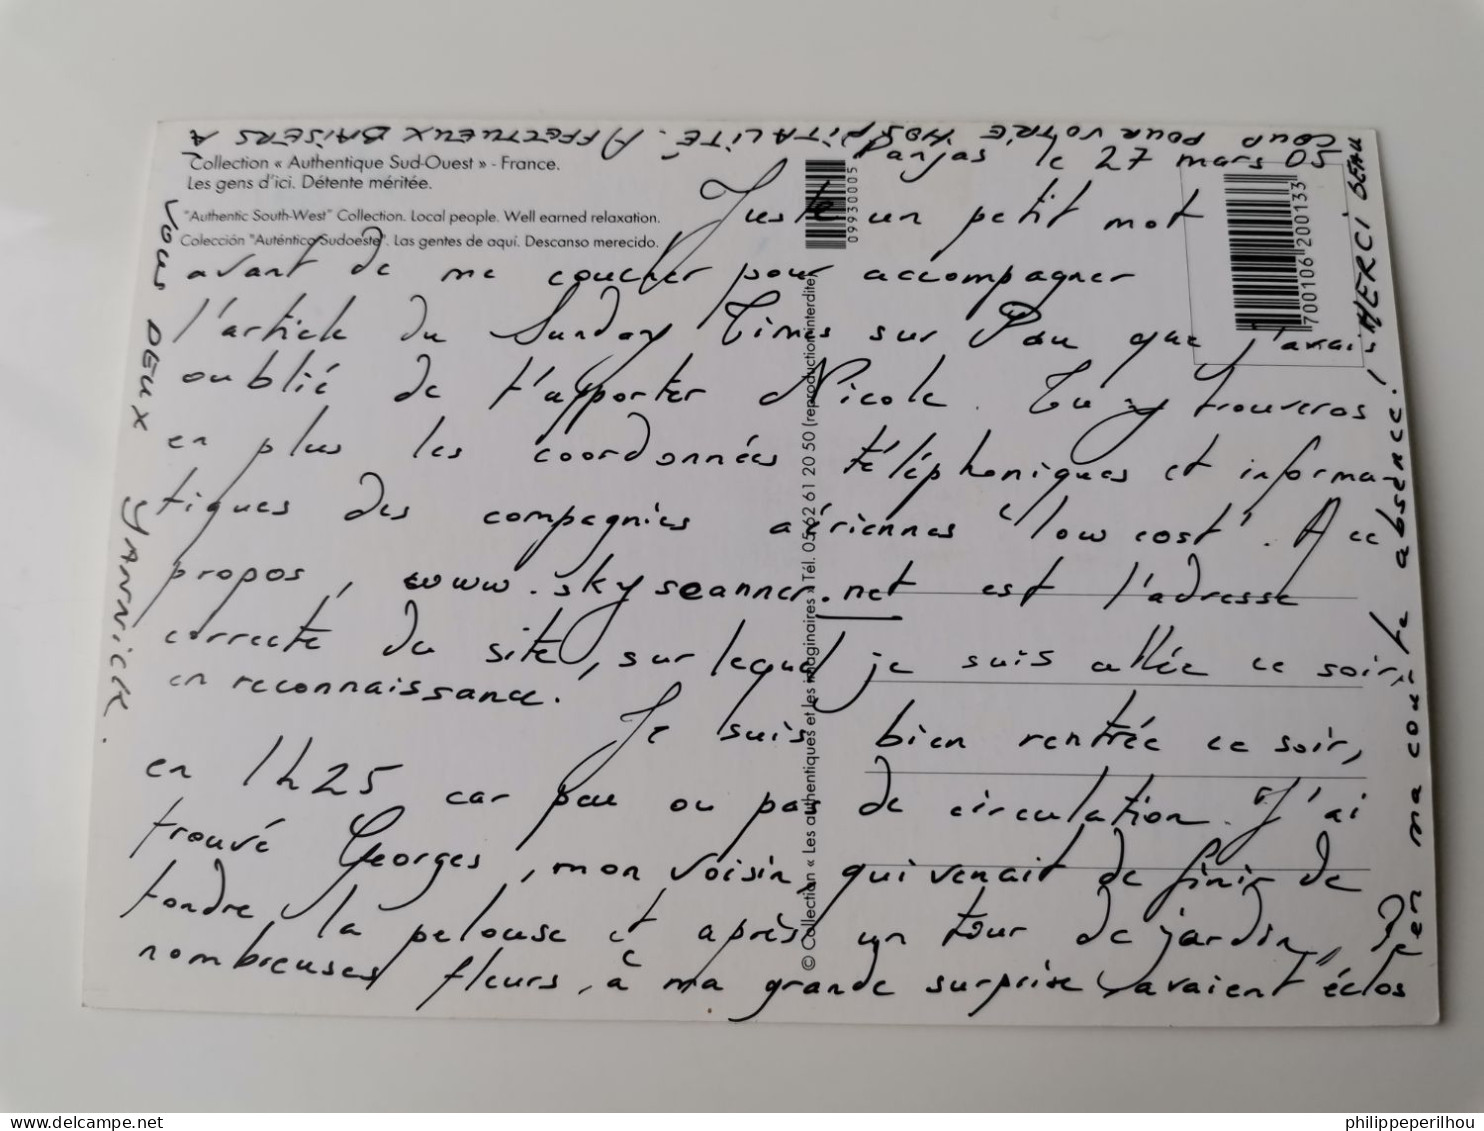 Collection « Authentique Sud-Ouest » - France.
Les gens d'ici. Détente méritée.
"Authentic South-West" Collection. Local people. Well earned relaxation.
Colección "Auténtico Sudoeste". Las gentes de aquí. Descanso merecido.
09930005
7001106200133
© Collection « Les authentiques et les imaginaires » Tél. 05 62 61 20 50 (reproduction interdite)
Panjas le 27 mars 05
Juste un petit mot
avant de me coucher pour accompagner
l'article du Sunday Times sur Pau que j'avais
oublié de t'apporter Nicole. Tu y trouveras
en plus les coordonnées téléphoniques et informa-
tiques des compagnies aériennes "low cost". A ce
propos, www.skyscanner.net est l'adresse
correcte du site, sur lequel je suis allée ce soir,
en reconnaissance.
Je suis bien rentrée ce soir,
en 1h25 car peu ou pas de circulation. J'ai
trouvé Georges, mon voisin, qui venait de finir de
tondre la pelouse et après un tour de jardin,
nombreuses fleurs, à ma grande surprise, avaient éclos
pen
ma courte absence !
MERCI BEAU
COUP POUR VOTRE HOSPITALITÉ. AFFECTUEUX BAISERS A
VOUS DEUX YANNICK.
www.delcampe.net
philippeperilhou